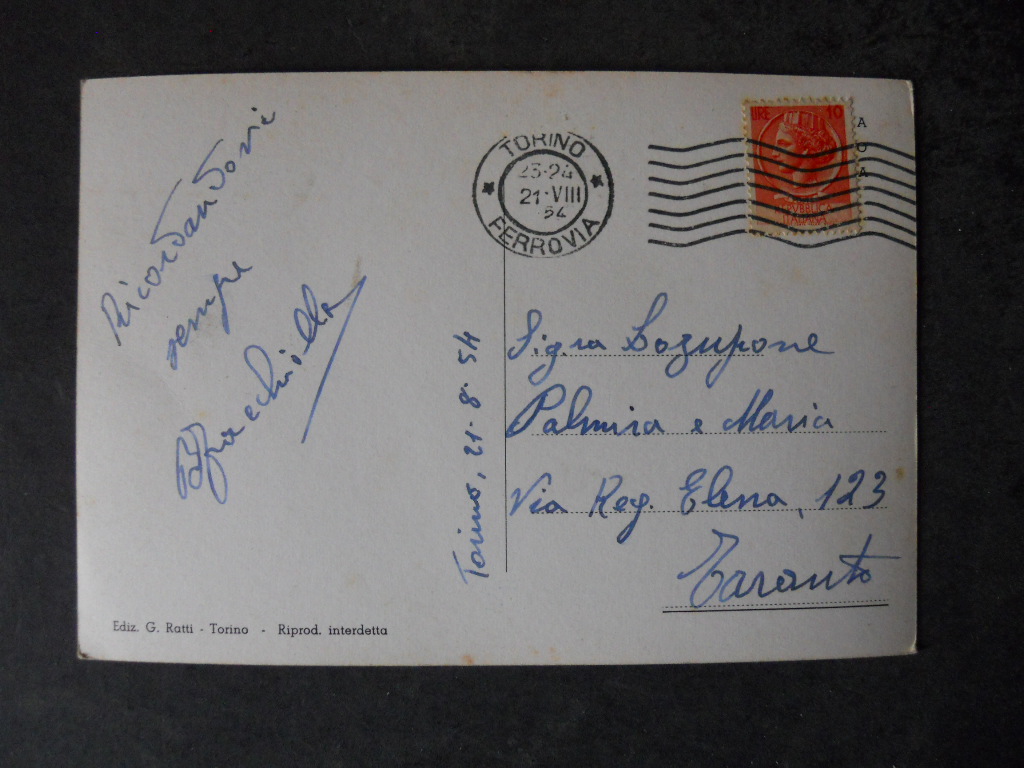 Ricordandovi
sempre
Torino, 21-8-54
Ediz. G. Ratti - Torino - Riprod. interdetta
TORINO
23-24
21·VIII
54
FERROVIA
LIRE 10
REPUBBLICA
ITALIANA
Sig.ra Lozupone
Palmira e Maria
Via Reg. Elena, 123
Taranto